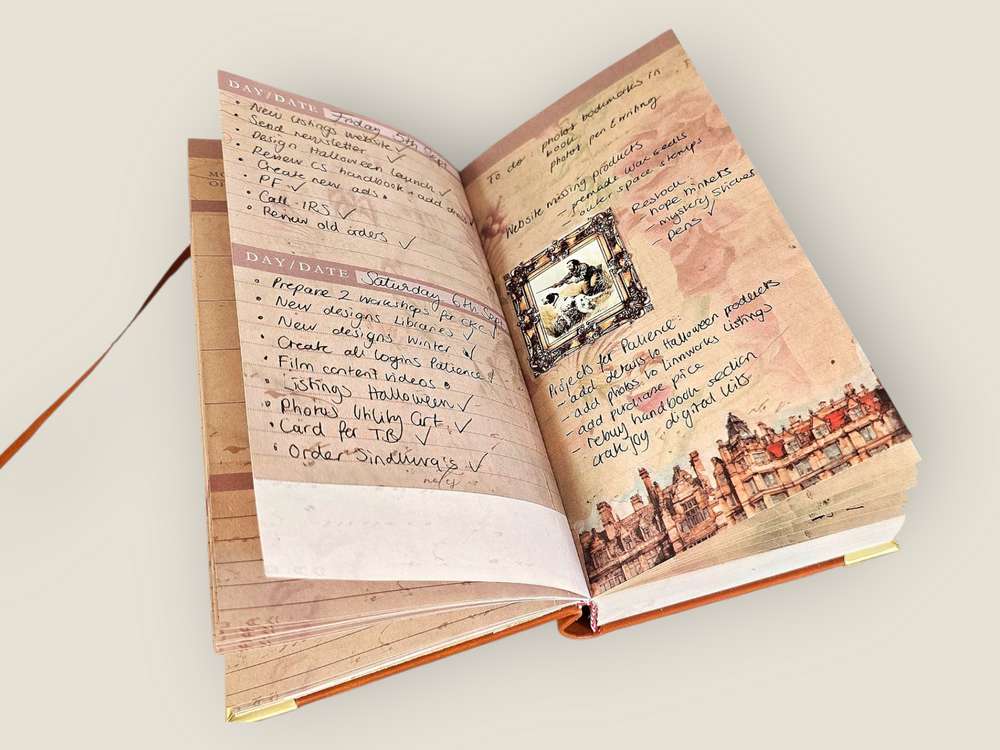 DAY/DATE Friday 5th Sept
• New listings website ✓
• Send newsletter ✓
• Design Halloween launch ✓
• Review CS handbook + add
• Create new ads •
• PF ✓
• Call IRS ✓
• Renew old orders ✓
DAY/DATE Saturday 6th Sept
• Prepare 2 workshops for CKC ✓
• New designs Libraries ✓
• New designs Winter
• Create all logins Patience
• Film content videos •
• Listings Halloween ✓
• Photos Utility Cart ✓
• Card for T.B ✓
• Order Sindlurg's ✓
To do: photos bookmarks in
books
photos pen & writing
Website missing products
- premade wax seals
- outer space stamps
Restock:
- hope trinkets
- mystery stickers
- pens ✓
Projects for Patience:
- add details to Halloween products
- add photos to Linnworks listings
- add purchase price
- rebuy handbook section
- crateyjoy digital kits